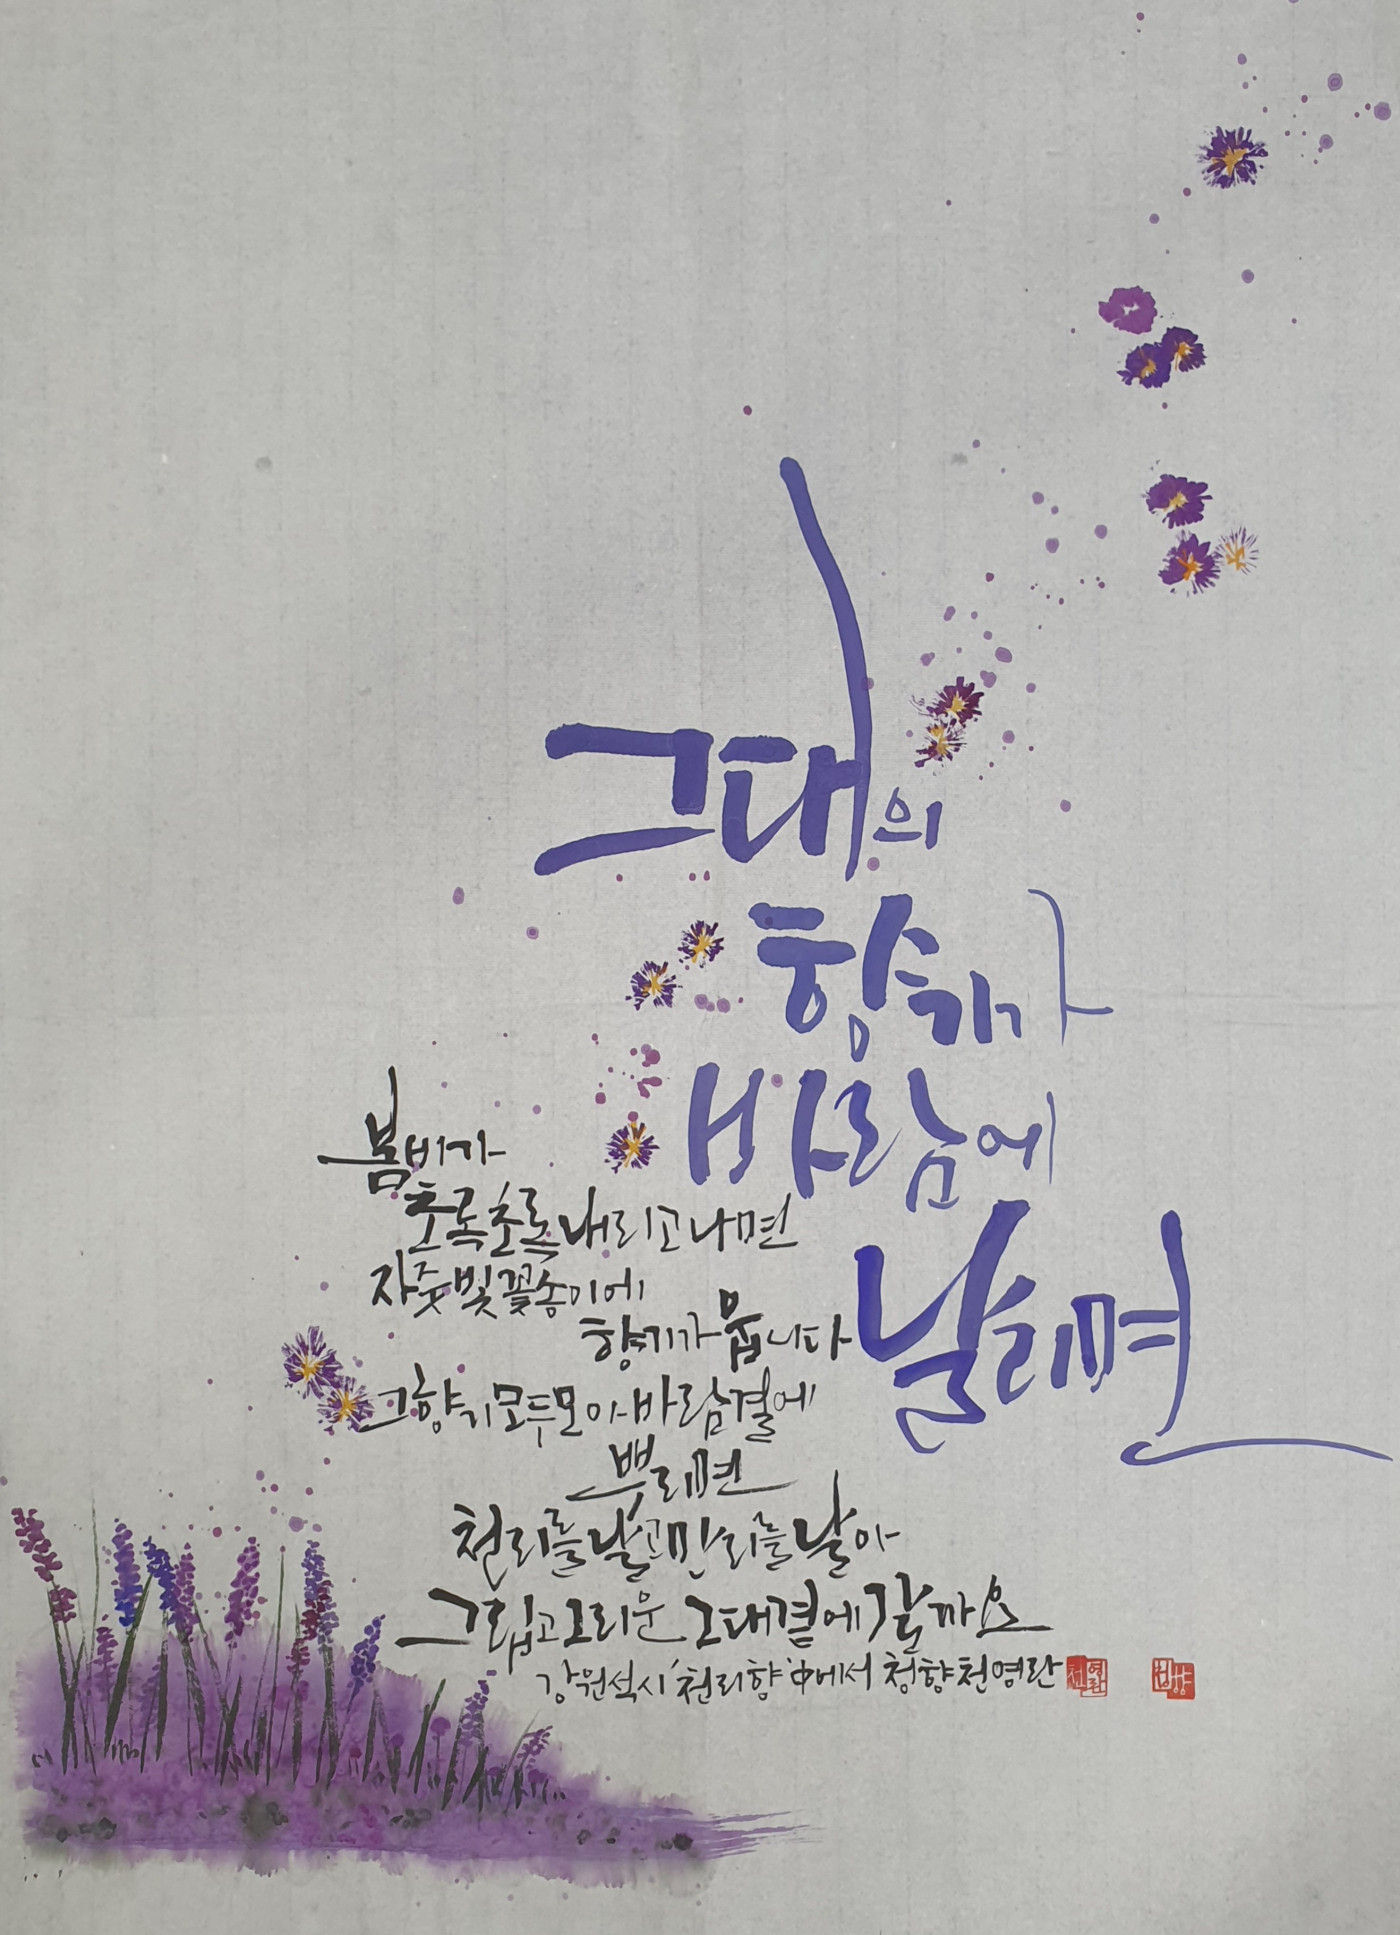 그대의
향기가
바람에
날리면
봄비가
초록초록 내리고 나면
자줏빛 꽃송이에
향기가 웁니다
그 향기 모두 모아 바람결에
뿌리면
천리를 날고 만리를 날아
그립고 그리운 그대 곁에 갈까요
강원석 시 '천리향' 中에서 청향 천영란